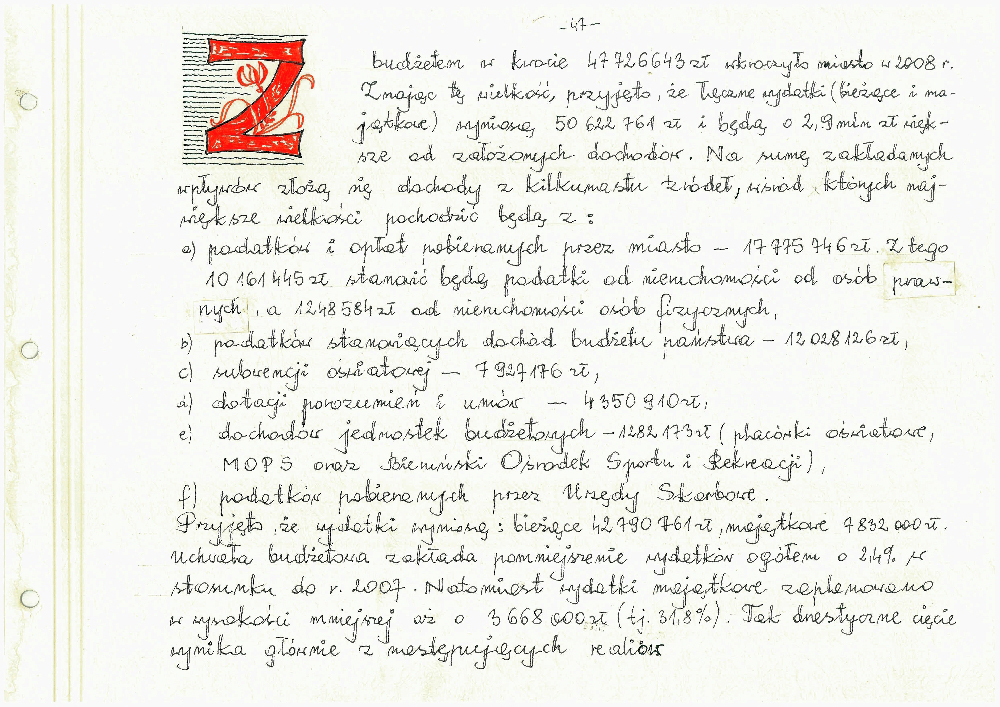 - 47 -
Z budżetem w kwocie 47 726 643 zł wkroczyło miasto w 2008 r.
Znając tę wielkość, przyjęto, że łączne wydatki (bieżące i ma-
jątkowe) wyniosą 50 622 761 zł i będą o 2,9 mln zł więk-
sze od założonych dochodów. Na sumę zakładanych
wpływów złożą się dochody z kilkunastu źródeł, wśród których naj-
większe wielkości pochodzić będą z :
a) podatków i opłat pobieranych przez miasto – 17 775 746 zł. Z tego
10 161 445 zł stanowić będą podatki od nieruchomości od osób praw-
nych, a 1248 584 zł od nieruchomości osób fizycznych,
b) podatków stanowiących dochód budżetu państwa – 12 028 126 zł,
c) subwencji oświatowej – 7 927 176 zł,
d) dotacji porozumień i umów – 4 350 910 zł,
e) dochodów jednostek budżetowych – 1282 173 zł (placówki oświatowe,
MOPS oraz Bieruński Ośrodek Sportu i Rekreacji),
f) podatków pobieranych przez Urzędy Skarbowe.
Przyjęto, że wydatki wyniosą : bieżące 42 790 761 zł, majątkowe 7 832 000 zł.
Uchwała budżetowa zakłada pomniejszenie wydatków ogółem o 2,4% w
stosunku do r. 2007. Natomiast wydatki majątkowe zaplanowano
w wysokości mniejszej aż o 3 668 000 zł (tj. 31,8%). Tak drastyczne cięcie
wynika głównie z następujących realiów